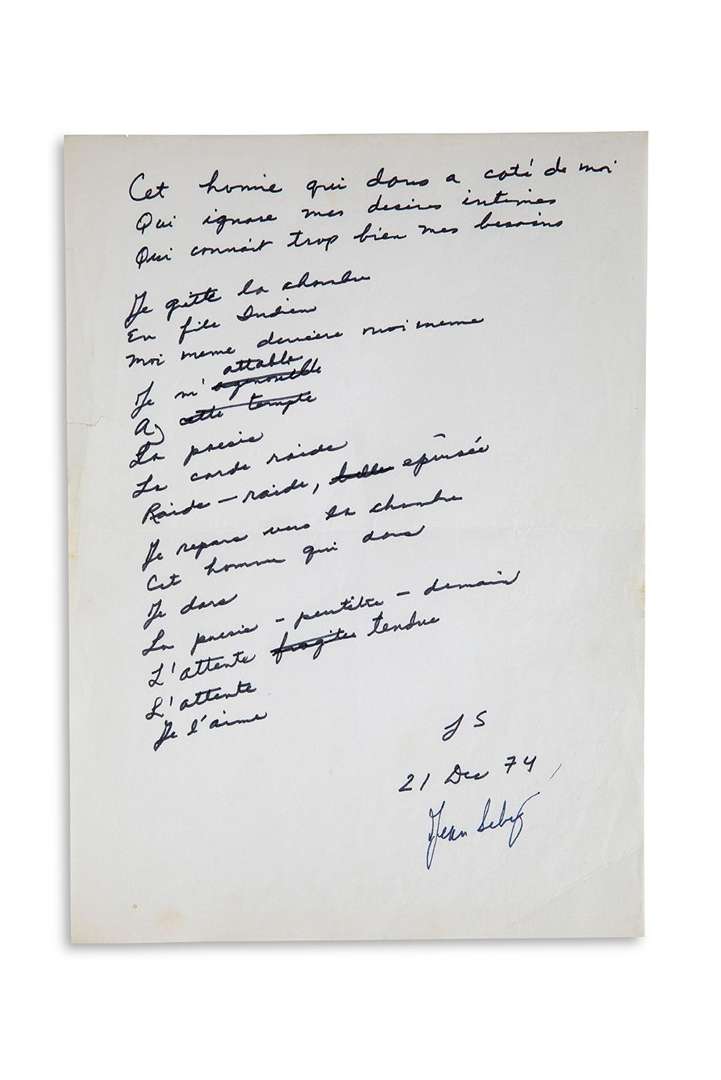 Cet homme qui dors a coté de moi
Qui ignore mes desires intimes
Qui connait trop bien mes besoins
Je quitte la chambre
En file Indien
Moi meme derriere moi meme
attable
Je m' agenouille
A cette temple
La poesie
La corde raide
Raide - raide, belle epuisée
Je repars vers la chambre
Cet homme qui dors
Je dors
La poesie - peutêtre - demain
L'attente fragile tendue
L'attente
Je l'aime
JS
21 Dec 74
Jean Seberg